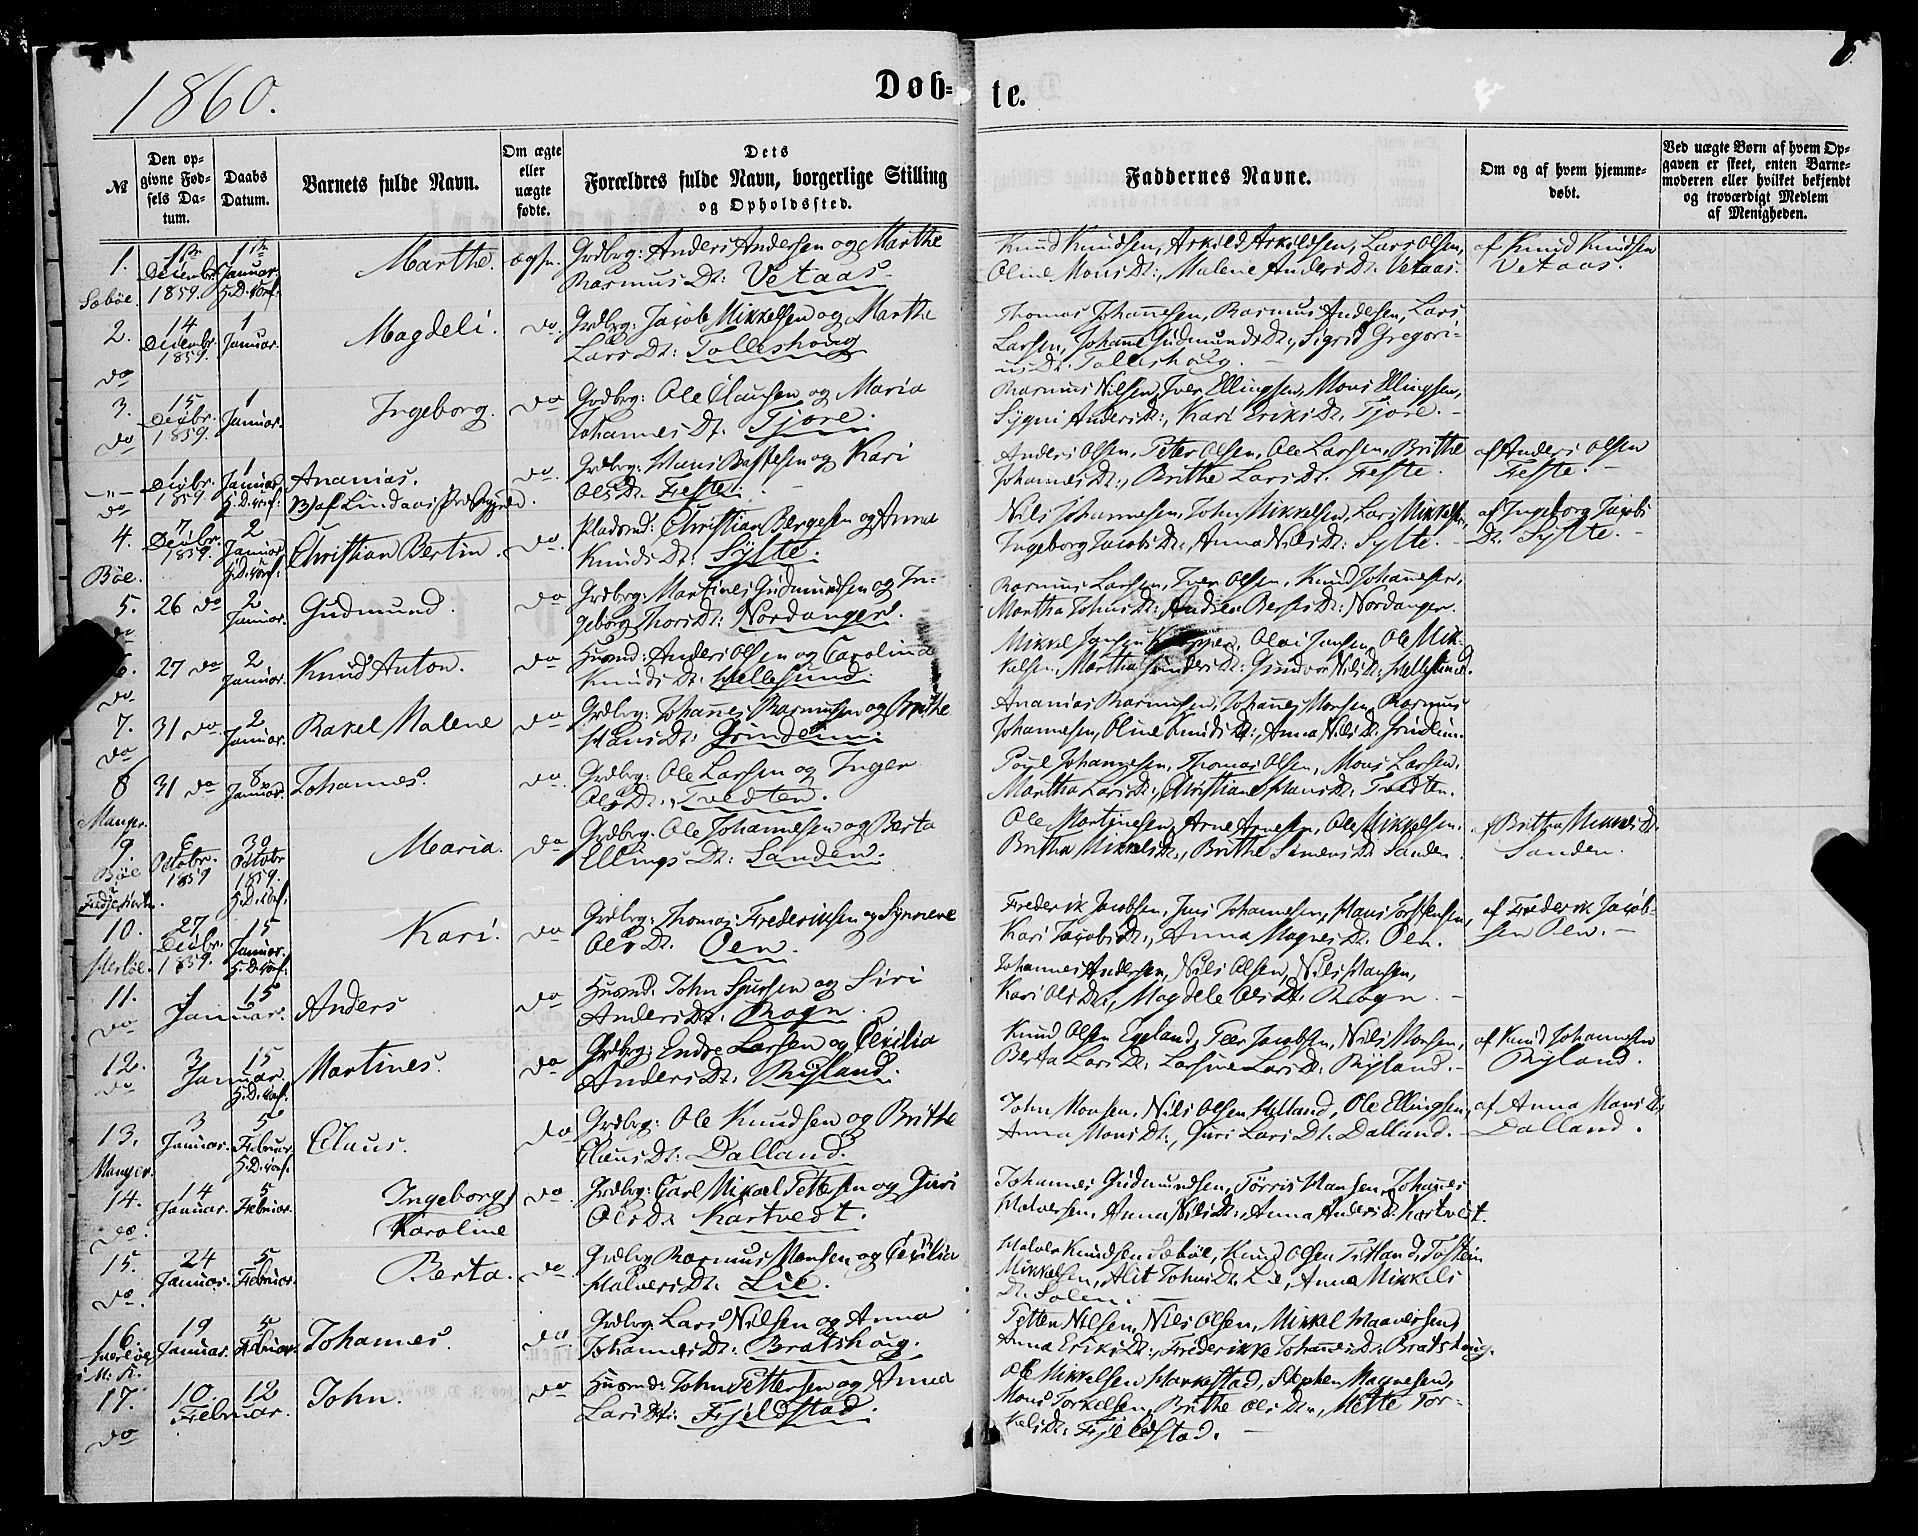 1860.
Døb-
te.
6
№
Den op-
givne Fød-
sels Da-
tum.
Daabs
Datum.
Barnets fulde Navn.
Om ægte
eller
uægte
fødte.
Dets
Forældres fulde Navn, borgerlige Stilling
og Opholdssted.
Faddernes Navne.
Om og af hvem hjemme-
døbt.
Ved uægte Børn af hvem Op-
gaven er skeet, enten Barne-
moderen eller hvilket bekjendt
og troværdigt Medlem
af Menigheden.
1.
Sæbøe.
Decembr.
1859.
Januar.
Marthe.
Grdbrg: Anders Andersen og Marthe
Rasmus Dt: Vetaas
Knud Knudsen, Arkild Arkildsen, Lars Olsen,
Oline Mons Dt:, Malene Anders Dt. Vetaas.
af Knud Knudsen
Vetaas.
2.
do
14
Decembr.
1859.
1
Januar.
Magdeli.
do.
Grdbrg: Jacob Mikkelsen og Martha
Lars Dt: Tolleshoug
Thomas Johannesen, Rasmus Andersen, Lars
Larsen, Johanne Gudmunds Dt:, Sigrid Gregori-
us Dt. Tolleshoug.
3.
do
15
Decbr.
1859.
1
Januar.
Ingeborg.
do
Grdbrg: Ole Clausen og Maria
Johannes Dt. Tjore.
Rasmus Nilsen, Iver Ellingsen, Mons Ellingsen,
Sygni Anders Dt:, Kari Eriks Dt. Tjore.
-"-
do
1
Decbr.
1859
1
Januar
Ananias.
af Lindaas
do.
Grdbrg: Hans Bastesen og Kari
Ols Dt. Feste.
Anders Olsen, Peter Olsen, Ole Larsen, Brithe
Johannes Dt:, Brithe Lars Dt. Feste.
af Anders Olsen
Feste.
4.
Bøe.
7
Decbr.
1859.
2
Januar
Christian Bertin.
do.
Pladsmd: Christian Bergesen og Anna
Knuds Dt: Sylte.
Nils Johannesen, John Mikkelsen, Lars Mikkelsen,
Ingeborg Jacobs Dt:, Anna Nils Dt: Sylte.
af Ingeborg Jacobs
Dt. Sylte.
5.
do
26 do
2
Januar.
Gudmund.
do
Grdbrg: Martines Gudmundsen og In-
geborg Thors Dt: Nordanger.
Rasmus Larsen, Iver Olsen, Knud Johannesen,
Martha Johns Dt:, Andrea Berges Dt: Nordanger.
6.
do.
27 do
2
Januar.
Knud Anton.
do
Husmd: Anders Olsen og Carolina
Knuds Dt: Hellesund.
Mikkel Jansen Olai Jansen, Ole Mik-
kelsen, Martha Dt: Gundvor Nils Dt: Hellesund.
7.
do
31 do
2
Januar.
Rakel Malene
do
Grdbrg: Johannes Rasmussen og Brithe
Hans Dt: Grindeim.
Ananias Rasmussen, Johannes Monsen, Rasmus
Johannesen, Oline Knuds Dt:, Anna Nils Dt. Grindeim.
8
Manger.
31 do
8
Januar.
Johannes.
do.
Grdbrg: Ole Larsen og Inger
Ols Dt: Tvedten.
Poul Johannesen, Thomas Olsen, Mons Larsen,
Martha Lars Dt:, Christian Hans Dt: Tvedten.
9.
Bøe
6
Octobr.
1859
30
Octobr
1859.
Maria.
do
Grdbrg: Ole Johannesen og Berta
Ellings Dt: Sanden.
Ole Martinesen, Arne Arnesen, Ole Mikkelsen,
Britha Mikkels Dt:, Brithe Simens Dt Sanden.
af Britha Mikkels Dt.
Sanden.
10.
Herløe.
27
Decbr.
1859.
15
Januar.
Kari.
do
Grdbrg: Thomas Frederiksen og Synneve
Ols Dt. Oen.
Frederik Jacobsen, Jens Johannesen, Hans Torstensen,
Kari Jacobs Dt:, Anna Magnes Dt. Oen.
af Frederik Jacob-
sen Oen.
11.
do
1
Januar.
15
Anders
do
Husmd: John Sjursen og Siri
Anders Dt: Rogn.
Johannes Andersen, Nils Olsen, Nils Hansen,
Kari Ols Dt:, Magdele Ols Dt. Rogn.
12.
do
3
Januar.
15
Martines.
do
Grdbrg: Endre Larsen og Cecilia
Anders Dt: Ryland.
Knud Olsen Egeland, Peer Jacobsen, Nils Monsen,
Berta Lars Dt: Lars Dt: Ryland.
af Knud Johannesen
Ryland.
13.
Manger.
3
Januar.
5
Februar
Claus.
do
Grdbrg: Ole Knudsen og Brithe
Claus Dt: Dalland.
John Monsen, Nils Olsen Helland, Ole Ellingsen,
Anna Mons Dt:, Guri Lars Dt. Dalland.
af Anna Mons Dt
Dalland.
14.
do.
14
Januar.
5
Februar.
Ingeborg
Karoline
do.
Grdbrg: Carl Mikael Pettersen og Guri
Ols Dt: Kartvedt.
Johannes Gudmundsen, Torris Hansen, Johannes
Halversen, Anna Nils Dt:, Anna Anders Dt. Kartvedt.
15.
do.
24
Januar.
5
Februar.
Berta.
do.
Grdbrg: Rasmus Monsen og Cecilia
Halvers Dt: Lie.
Halvor Knudsen Sæbøe, Knud Olsen Titland, Tostein
Mikkelsen, Alit Johns Dt: Lie, Anna Mikkels
Dt. Solem.
16.
19
Januar.
5
Februar.
Johannes.
do
Grdbrg: Lars Nilsen og Anna
Johannes Dt: Bratshoug.
Petter Nilsen, Nils Olsen, Mikkel Haaversen,
Anna Eriks Dt:, Frederikke Johannes Dt. Bratshoug.
17.
do
10.
Februar.
12
John.
do
Husmd: John Pettersen og Anna
Lars Dt: Fjeldstad.
Ole Mikkelsen Markestad, Stephen Magnesen,
Mons Torkelsen, Brithe Ols Dt., Mette Tor-
kels Dt: Fjeldstad.